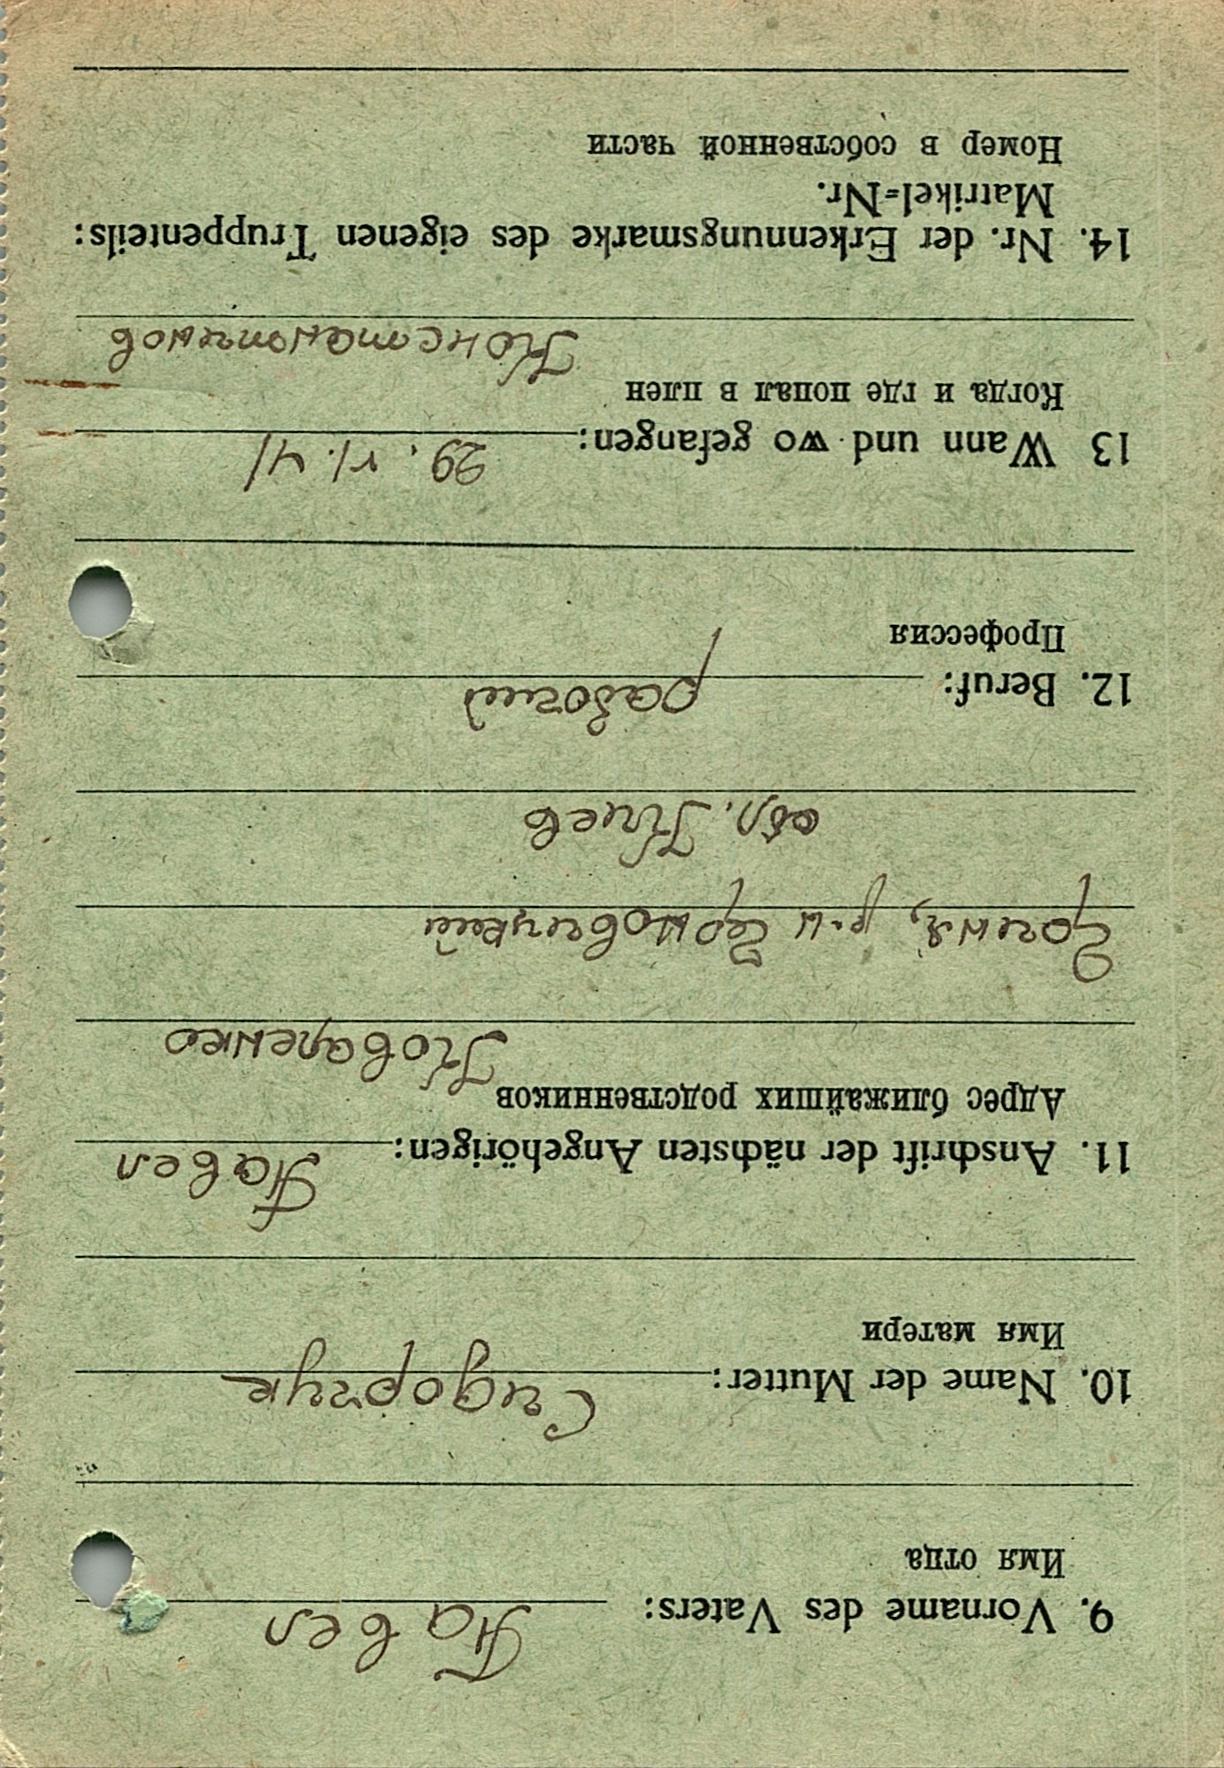 9. Vorname des Vaters: Павел
Имя отца
10. Name der Mutter: Сидорчук
Имя матери
11. Anschrift der nächsten Angehörigen: Павел
Адрес ближайших родственников
Коваленко
р-н
обл. Киев
12. Beruf: рабочий
Профессия
13 Wann und wo gefangen: 29. VI. 41
Когда и где попал в плен
Константинов
14. Nr. der Erkennungsmarke des eigenen Truppenteils:
Matrikel=Nr.
Номер в собственной части